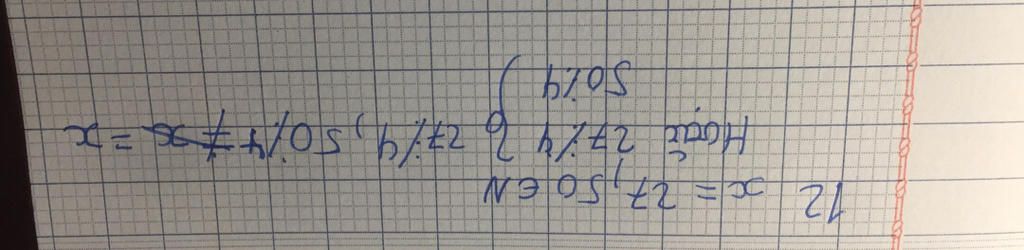 12 x = 27, 50 ∈ N
Hoặc 27 ⋮̸ 4 } 27 ⋮̸ 4, 50 ⋮̸ 4 = x
50 ⋮̸ 4